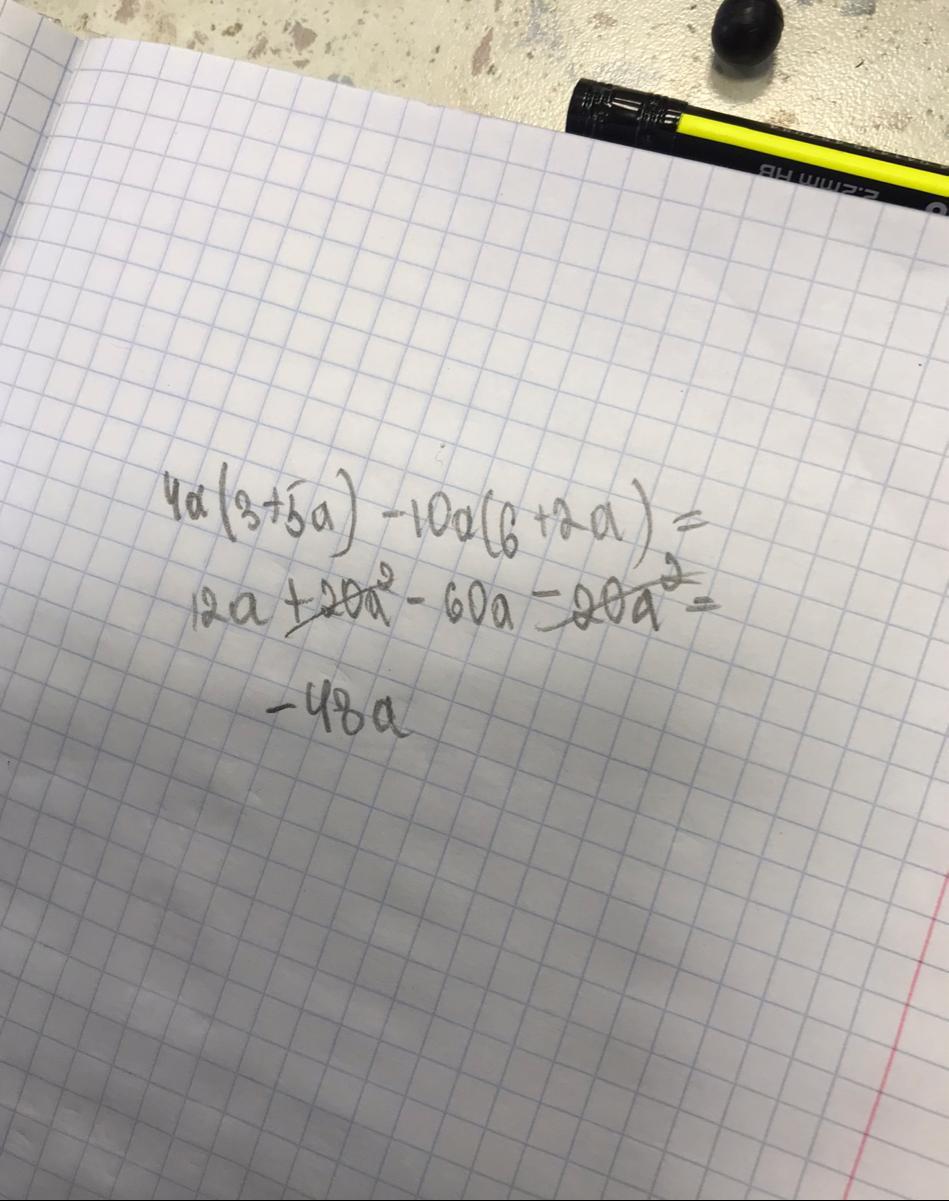 4a(3+5a) -10a(6+2a) =
12a +20a² - 60a - 20a² =
-48a
2.2mm HB